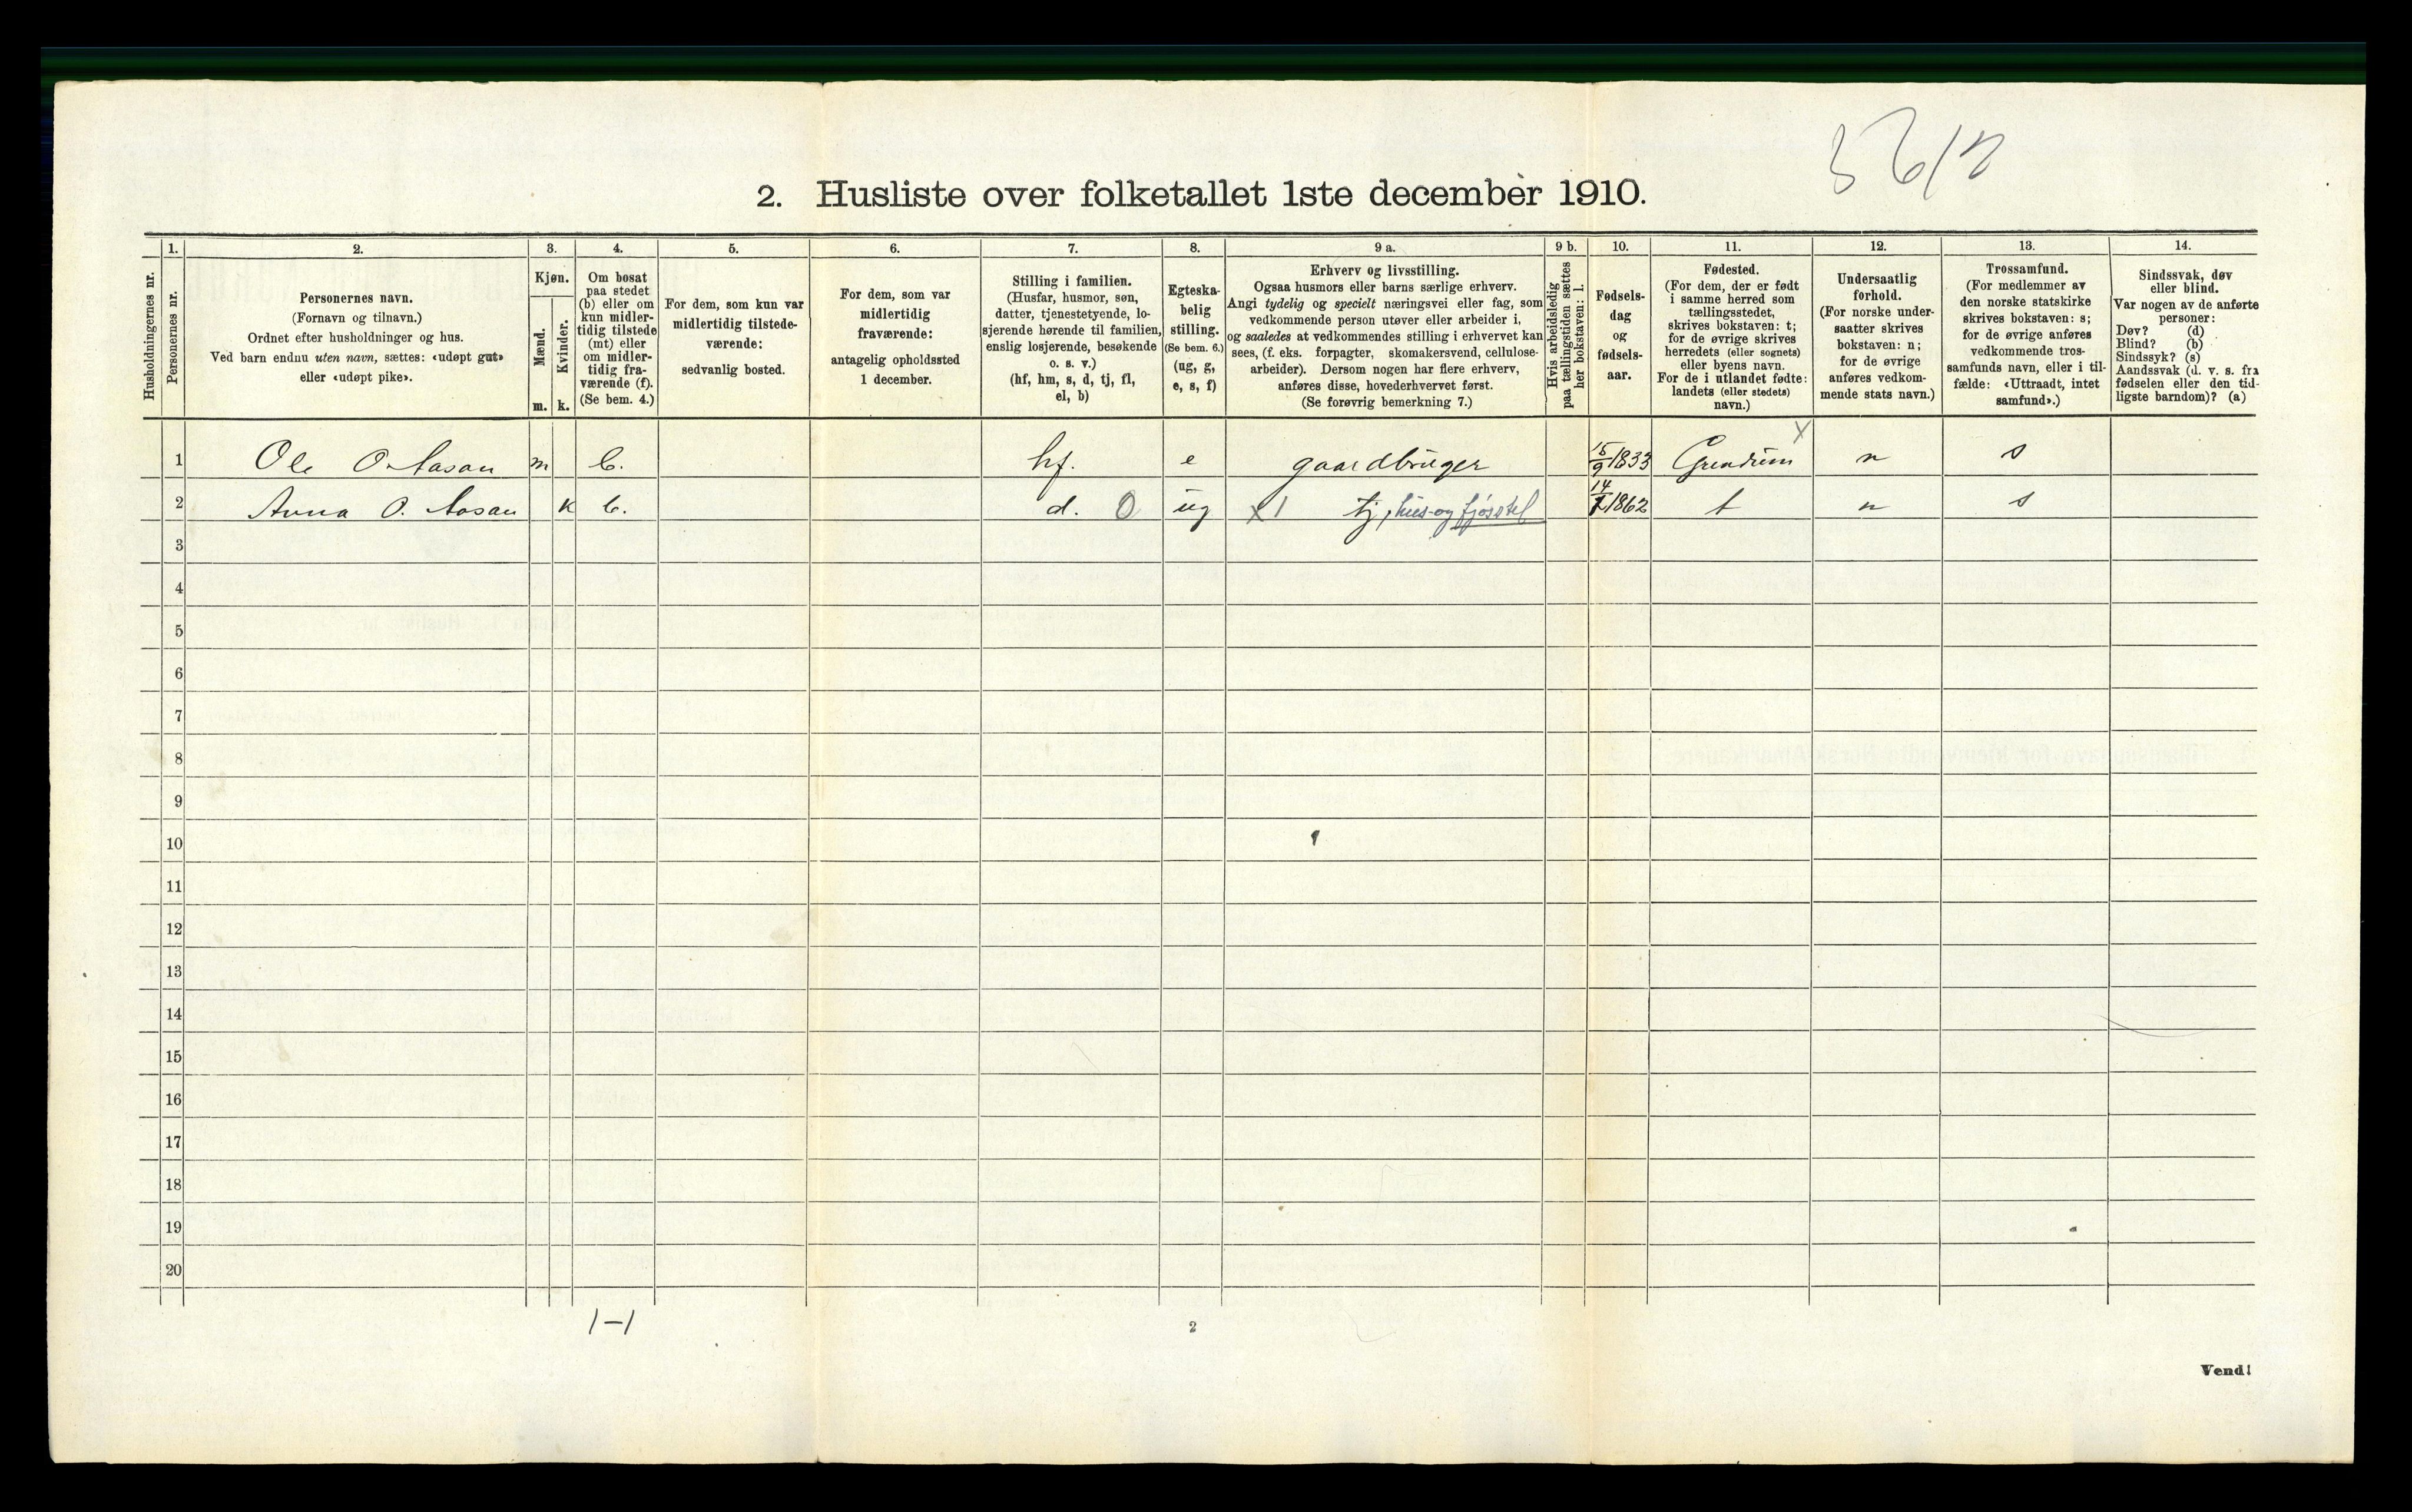 2. Husliste over folketallet 1ste december 1910.
Husholdningernes nr.
1.
Personernes nr.
2.
Personernes navn.
(Fornavn og tilnavn.)
Ordnet efter husholdninger og hus.
Ved barn endnu uten navn, sættes: «udøpt gut»
eller «udøpt pike».
3.
Kjøn.
Mænd.
Kvinder.
m. k.
4.
Om bosat
paa stedet
(b) eller om
kun midler-
tidig tilstede
(mt) eller
om midler-
tidig fra-
værende (f).
(Se bem. 4.)
5.
For dem, som kun var
midlertidig tilstede-
værende:
sedvanlig bosted.
6.
For dem, som var
midlertidig
fraværende:
antagelig opholdssted
1 december.
7.
Stilling i familien.
(Husfar, husmor, søn,
datter, tjenestetyende, lo-
sjerende hørende til familien,
enslig losjerende, besøkende
o. s. v.)
(hf, hm, s, d, tj, fl,
el, b)
8.
Egteska-
belig
stilling.
(Se bem. 6.)
(ug, g,
e, s, f)
9 a.
Erhverv og livsstilling.
Ogsaa husmors eller barns særlige erhverv.
Angi tydelig og specielt næringsvei eller fag, som
vedkommende person utøver eller arbeider i,
og saaledes at vedkommendes stilling i erhvervet kan
sees, (f. eks. forpagter, skomakersvend, cellulose-
arbeider). Dersom nogen har flere erhverv,
anføres disse, hovederhvervet først.
(Se forøvrig bemerkning 7.)
9 b.
Hvis arbeidsledig
paa tællingstiden sættes
her bokstaven: l.
10.
Fødsels-
dag
og
fødsels-
aar.
11.
Fødested.
(For dem, der er født
i samme herred som
tællingsstedet,
skrives bokstaven: t;
for de øvrige skrives
herredets (eller sognets)
eller byens navn.
For de i utlandet fødte:
landets (eller stedets)
navn.)
12.
Undersaatlig
forhold.
(For norske under-
saatter skrives
bokstaven: n;
for de øvrige
anføres vedkom-
mende stats navn.)
13.
Trossamfund.
(For medlemmer av
den norske statskirke
skrives bokstaven: s;
for de øvrige anføres
vedkommende tros-
samfunds navn, eller i til-
fælde: «Uttraadt, intet
samfund».)
14.
Sindssvak, døv
eller blind.
Var nogen av de anførte
personer:
Døv? (d)
Blind? (b)
Sindssyk? (s)
Aandssvak (d. v. s. fra
fødselen eller den tid-
ligste barndom)? (a)
1 Ole O. Aasan m b. hf. e gaardbruger 15/9 1833 Grindum x n s
2 Anna O. Aasan k b. d. 0 ug x 1 tj, hus- og fjøsstel 1862 t n s
3
4
5
6
7
8
9
10
11
12
13
14
15
16
17
18
19
20
1-1
2
Vend!